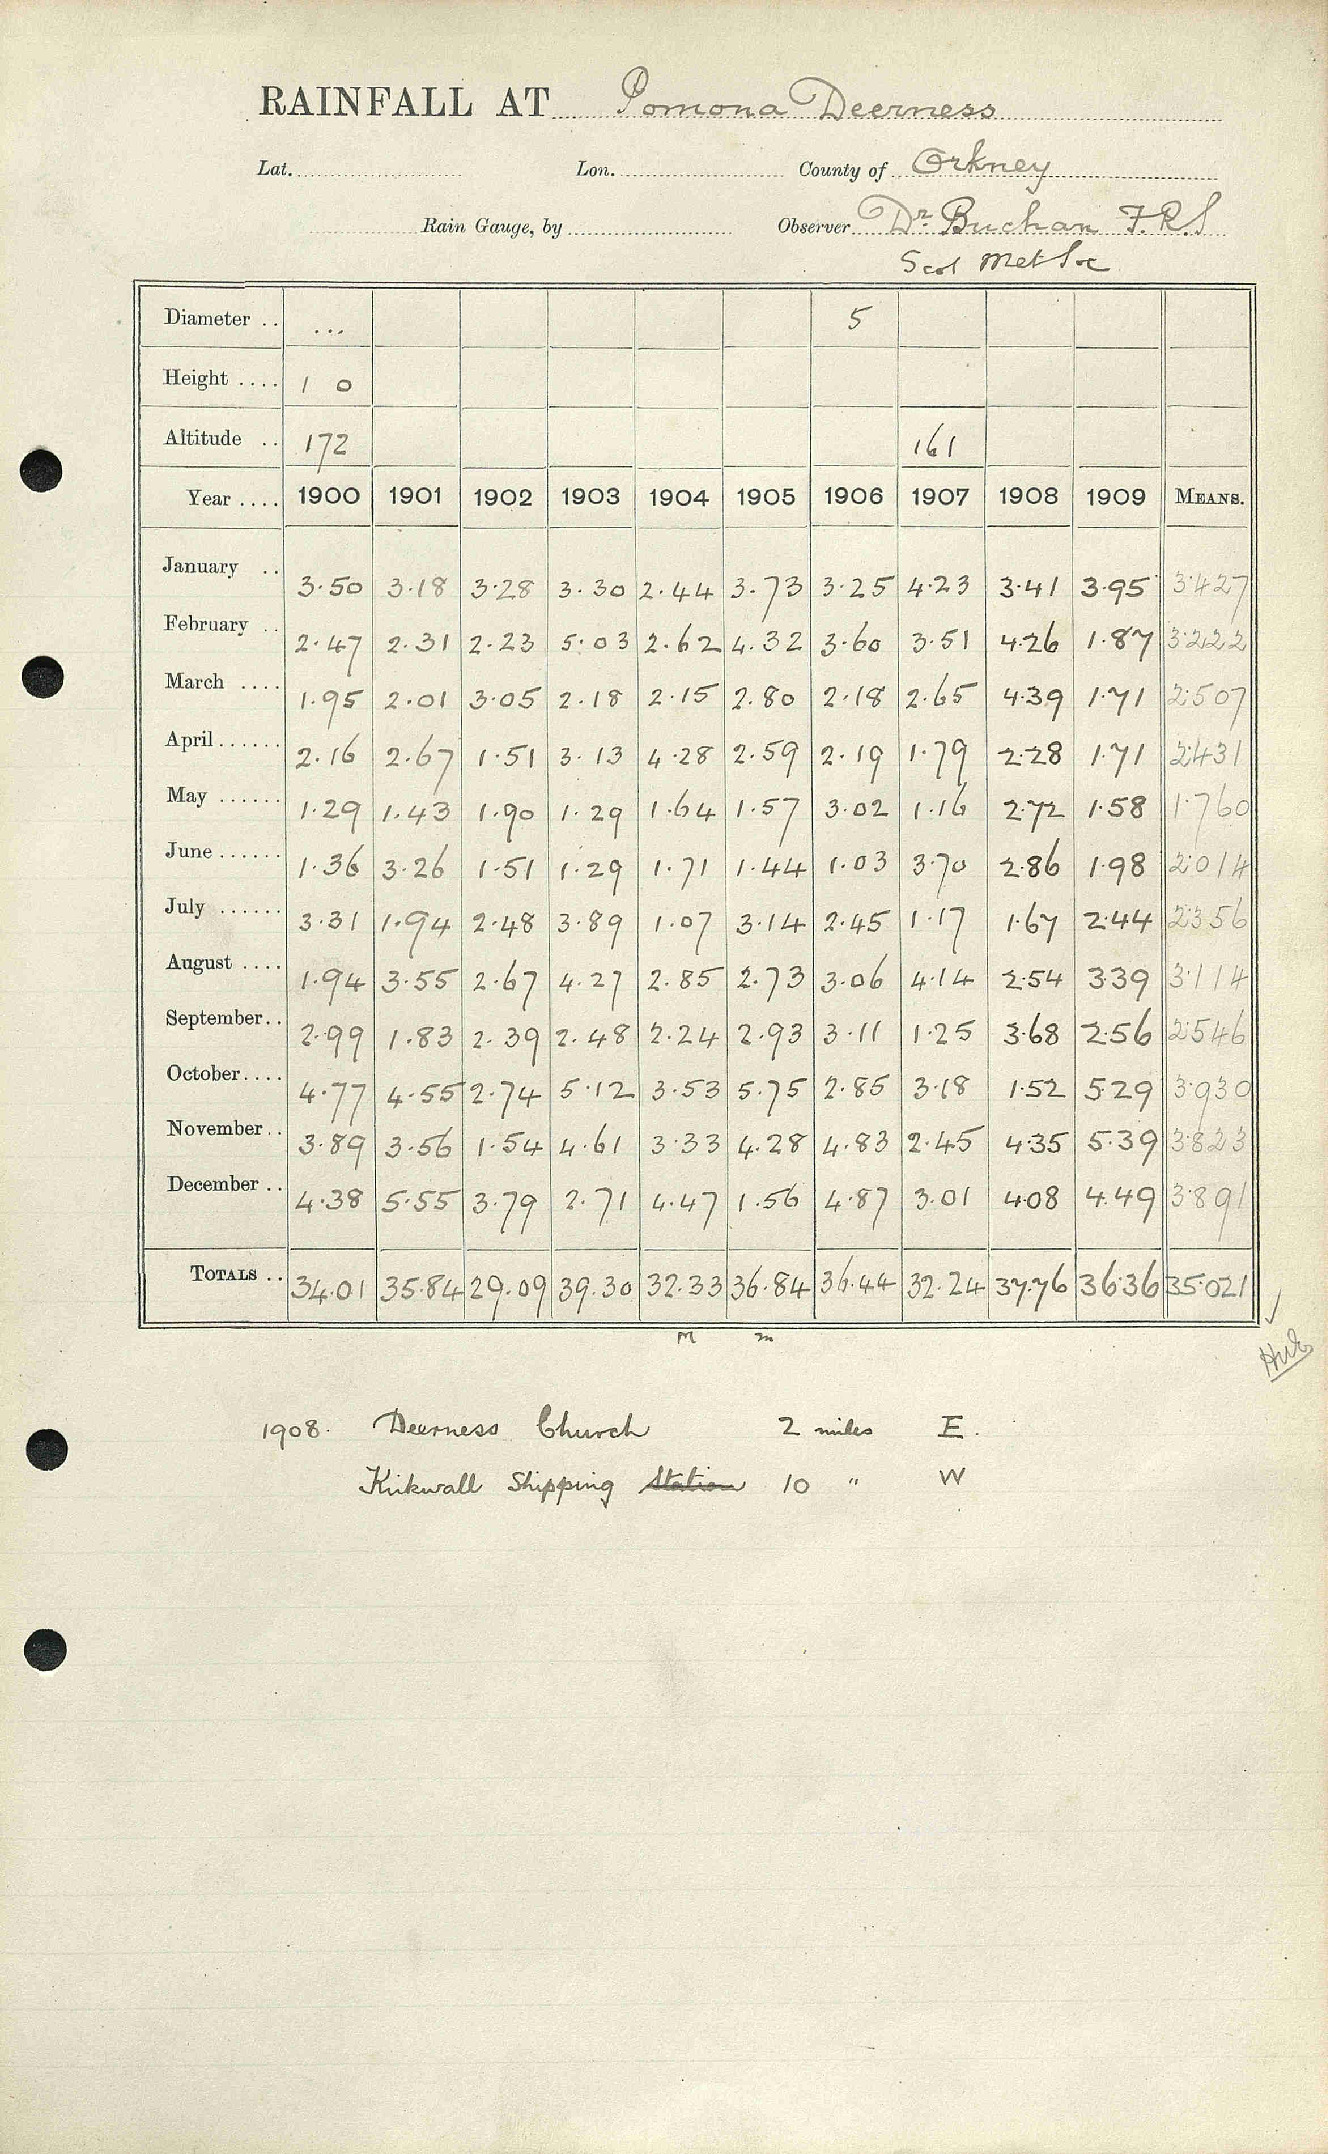 RAINFALL AT Pomona Deerness
Lat. Lon. County of Orkney
Rain Gauge, by Observer Dr. Buchan F.R.S
Scot Met Soc
Diameter .. ... 5
Height .... 1 0
Altitude .. 172 161
Year .... 1900 1901 1902 1903 1904 1905 1906 1907 1908 1909 MEANS.
January .. 3.50 3.18 3.28 3.30 2.44 3.73 3.25 4.23 3.41 3.95 3.427
February .. 2.47 2.31 2.23 5.03 2.62 4.32 3.60 3.51 4.26 1.87 3.222
March .... 1.95 2.01 3.05 2.18 2.15 2.80 2.18 2.65 4.39 1.71 2.507
April ...... 2.16 2.67 1.51 3.13 4.28 2.59 2.19 1.79 2.28 1.71 2.431
May ...... 1.29 1.43 1.90 1.29 1.64 1.57 3.02 1.16 2.72 1.58 1.760
June ...... 1.36 3.26 1.51 1.29 1.71 1.44 1.03 3.70 2.86 1.98 2.014
July ...... 3.31 1.94 2.48 3.89 1.07 3.14 2.45 1.17 1.67 2.44 2.356
August .... 1.94 3.55 2.67 4.27 2.85 2.73 3.06 4.14 2.54 3.39 3.114
September.. 2.99 1.83 2.39 2.48 2.24 2.93 3.11 1.25 3.68 2.56 2.546
October.... 4.77 4.55 2.74 5.12 3.53 5.75 2.85 3.18 1.52 5.29 3.930
November.. 3.89 3.56 1.54 4.61 3.33 4.28 4.83 2.45 4.35 5.39 3.823
December .. 4.38 5.55 3.79 2.71 4.47 1.56 4.87 3.01 4.08 4.49 3.891
TOTALS .. 34.01 35.84 29.09 39.30 32.33 36.84 36.44 32.24 37.76 36.36 35.021
M m
1908. Deerness Church 2 miles E.
Kirkwall Shipping Station 10 " W